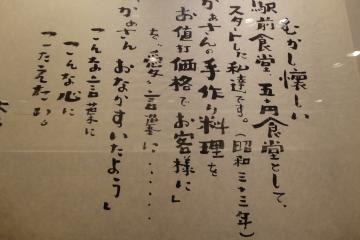 むかし懐しい
駅前食堂、五円食堂として、
スタートした私達です。(昭和三十三年)
かぁさん。手作り料理を
お値打価格でお客様に」
を愛言葉に・・・・・
かぁさん おなかすいたよう」
こんな言葉に
こんな心に
こたえたい。